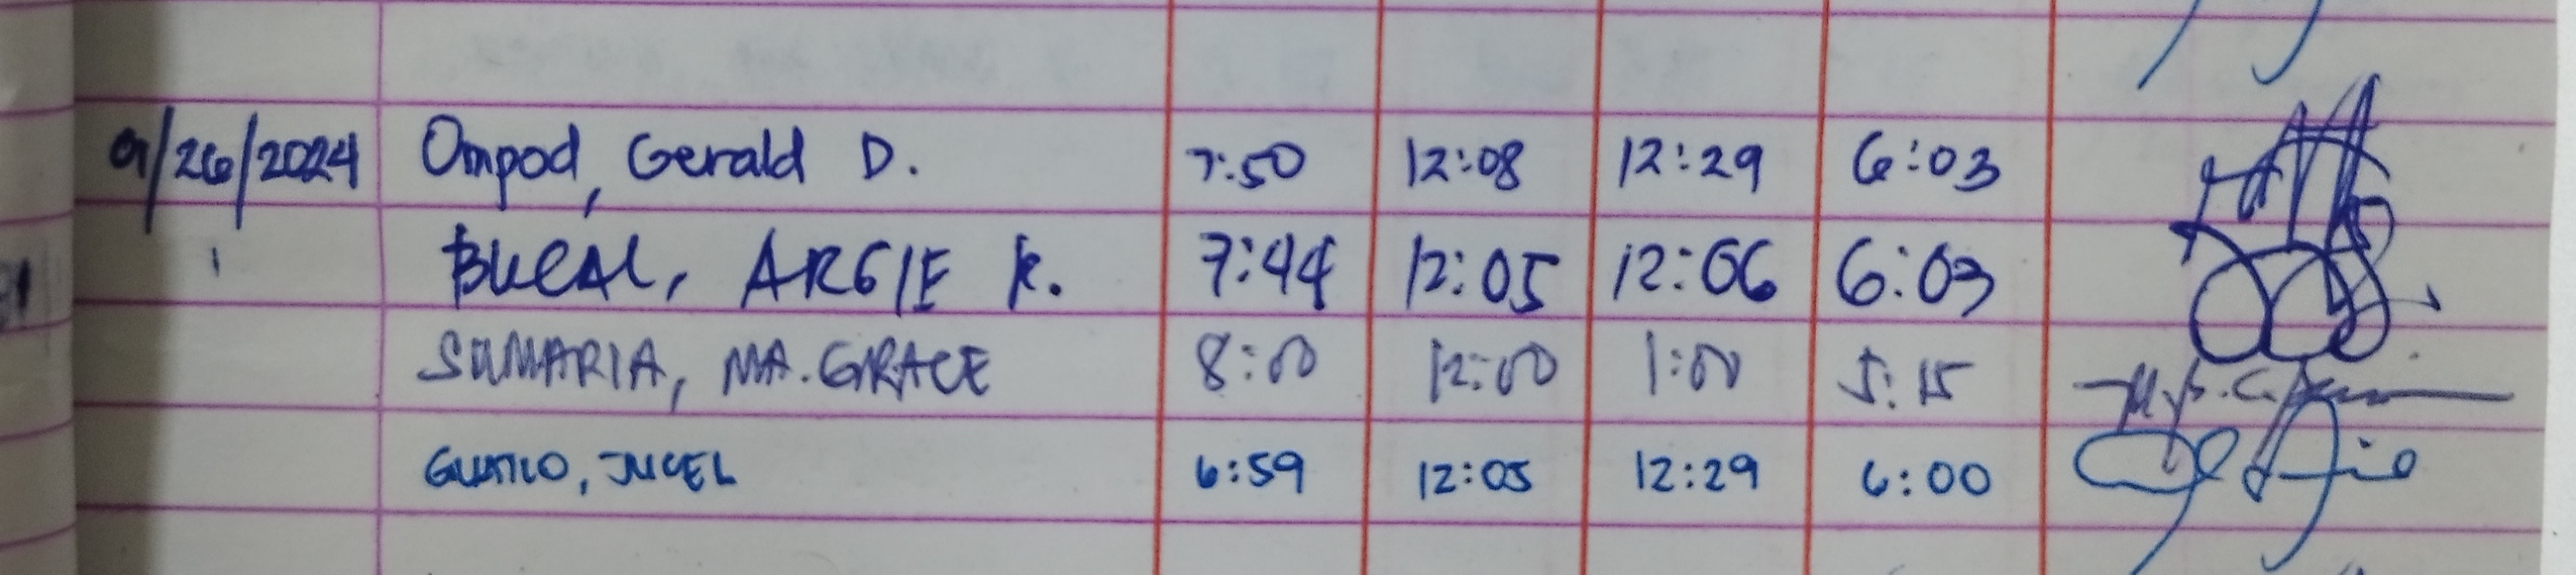 9/26/2024 Ompod, Gerald D. 7:50 12:08 12:29 6:03
BUCAL, ARGIE K. 7:44 12:05 12:06 6:03
SUMARIA, MA. GRACE 8:00 12:00 1:00 5:15
JUCEL 6:59 12:05 12:29 6:00